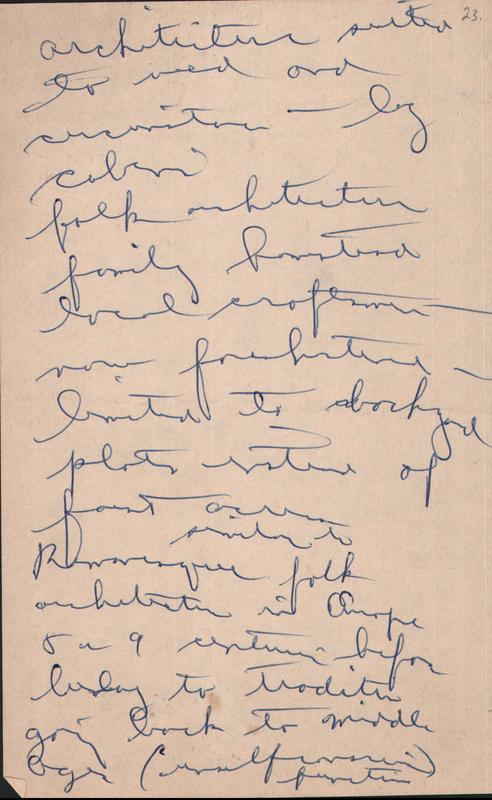 23.
architecture suited
to need and
– log
cabin
folk architecture
family homestead
local craftsmen –
now –
limited to dockyard
plots instead of
forest acres
similar to
Romanesque folk
architecture in Europe
8 or 9 centuries before
belong to tradition
going back to middle
ages (